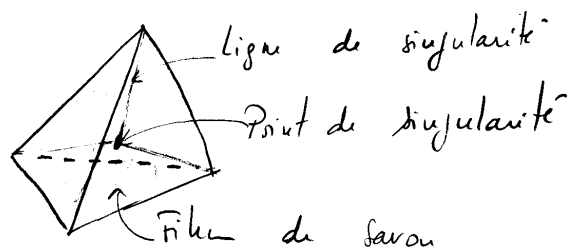 Ligne de singularité
Point de singularité
Film de savon